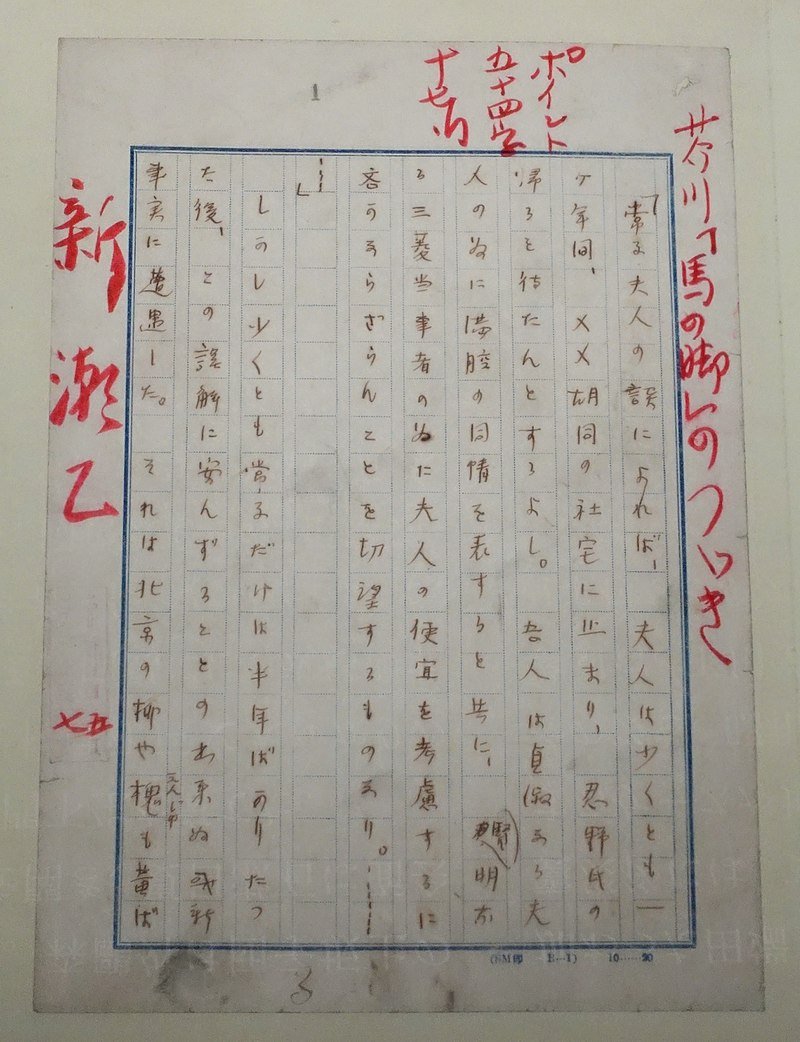 芥川「馬の脚」のつゞき
ポイント
五十四字
十七行
1
「常子夫人の談によれば、夫人は少くとも一
ヶ年間、××胡同の社宅に止まり、忍野氏の
帰るを待たんとするよし。吾人は貞淑なる夫
人の為に満腔の同情を表すると共に、賢明な
る三菱当事者の為に夫人の便宜を考慮するに
吝かならざらんことを切望するものなり。……
…」
しかし少くとも常子だけは半年ばかりたつ
た後、この誤解に安んずることの出来ぬ或新
事実に遭遇した。それは北京の柳や槐も黄ば
ゑんじゆ
新潮乙
七五
10……20
3